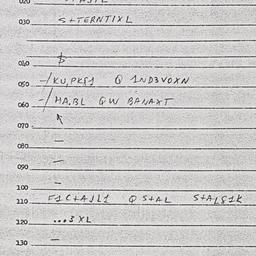 020
030 S+TERNTIXL
040 $
050 -/KU,PKS1 Q 1ND3VOXN
060 -/HA,BL QW BANAXT
070
080 —
090 —
100 —
110 F1C+AJL1 Q S+AL S+ALS1K
120 ...3 XL
130 —